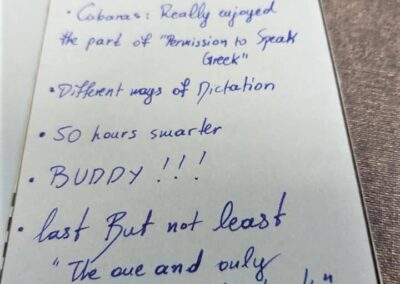 • Cabanas: Really enjoyed
the part of "Permission to Speak
Greek"
• Different ways of Dictation
• 50 hours smarter
• BUDDY !!!
• last But not least
"The one and only